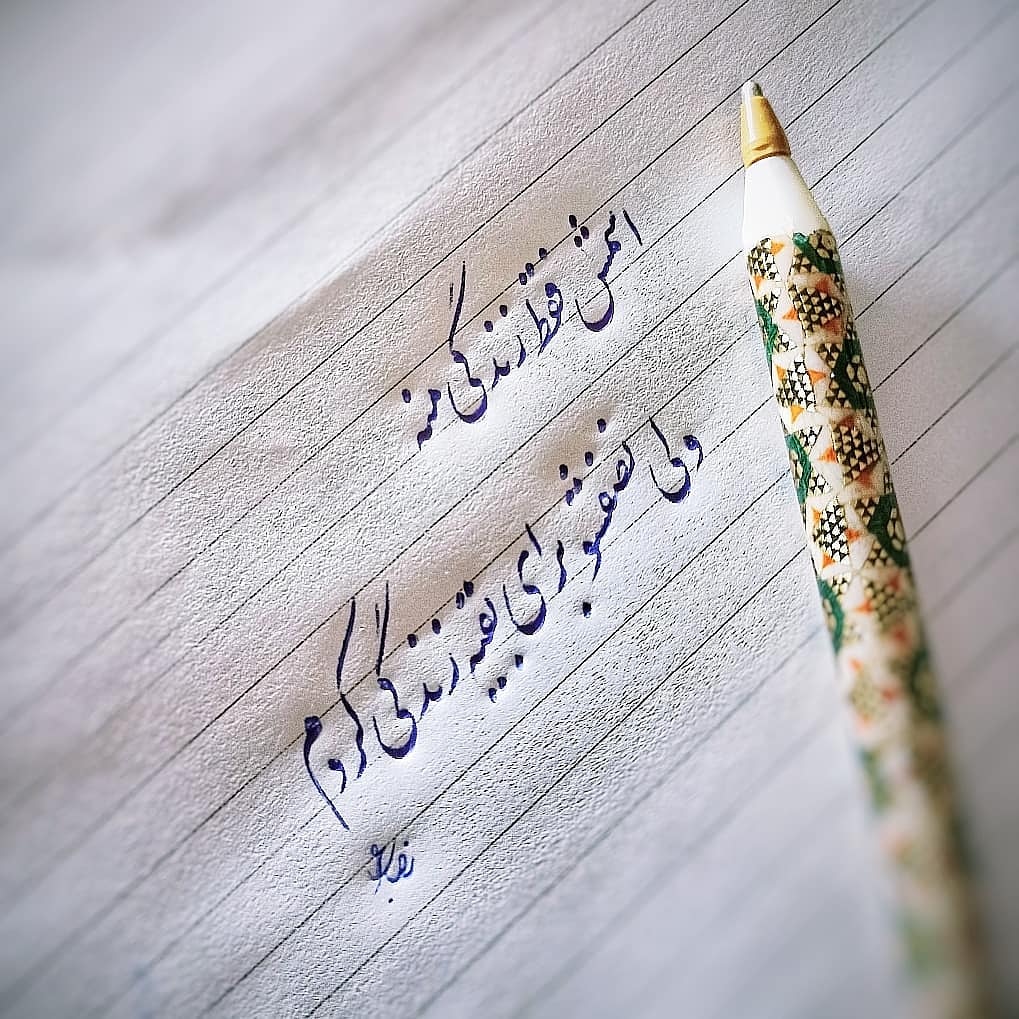 اسمش فقط زندگی منه
ولی نصفشو برای بقیه زندگی کردم